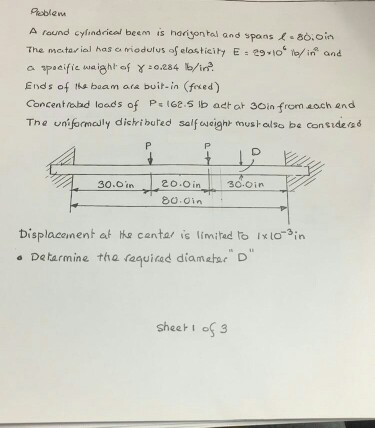 Problem
A round cylindrical beem is horizontal and spans l = 80.0in
The material has a modulus of elasticity E = 29*10⁶ lb/in² and
a specific weight of γ = 0.284 lb/in³.
Ends of the beam are buit-in (fixed)
Concentrated loads of P=162.5 lb act at 30in from each end
The uniformally distributed selfweight must also be considered
P P D
30.0in 20.0in 30.0in
80.0in
Displacement at the center is limited to 1x10⁻³in
• Determine the required diameter "D"
sheet 1 of 3